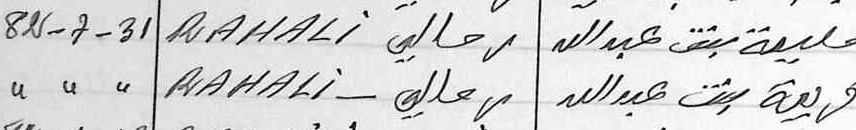 82-7-31 RAHALI رحالي حليمة بنت عبدالله
" " " RAHALI - رحالي بنت عبدالله